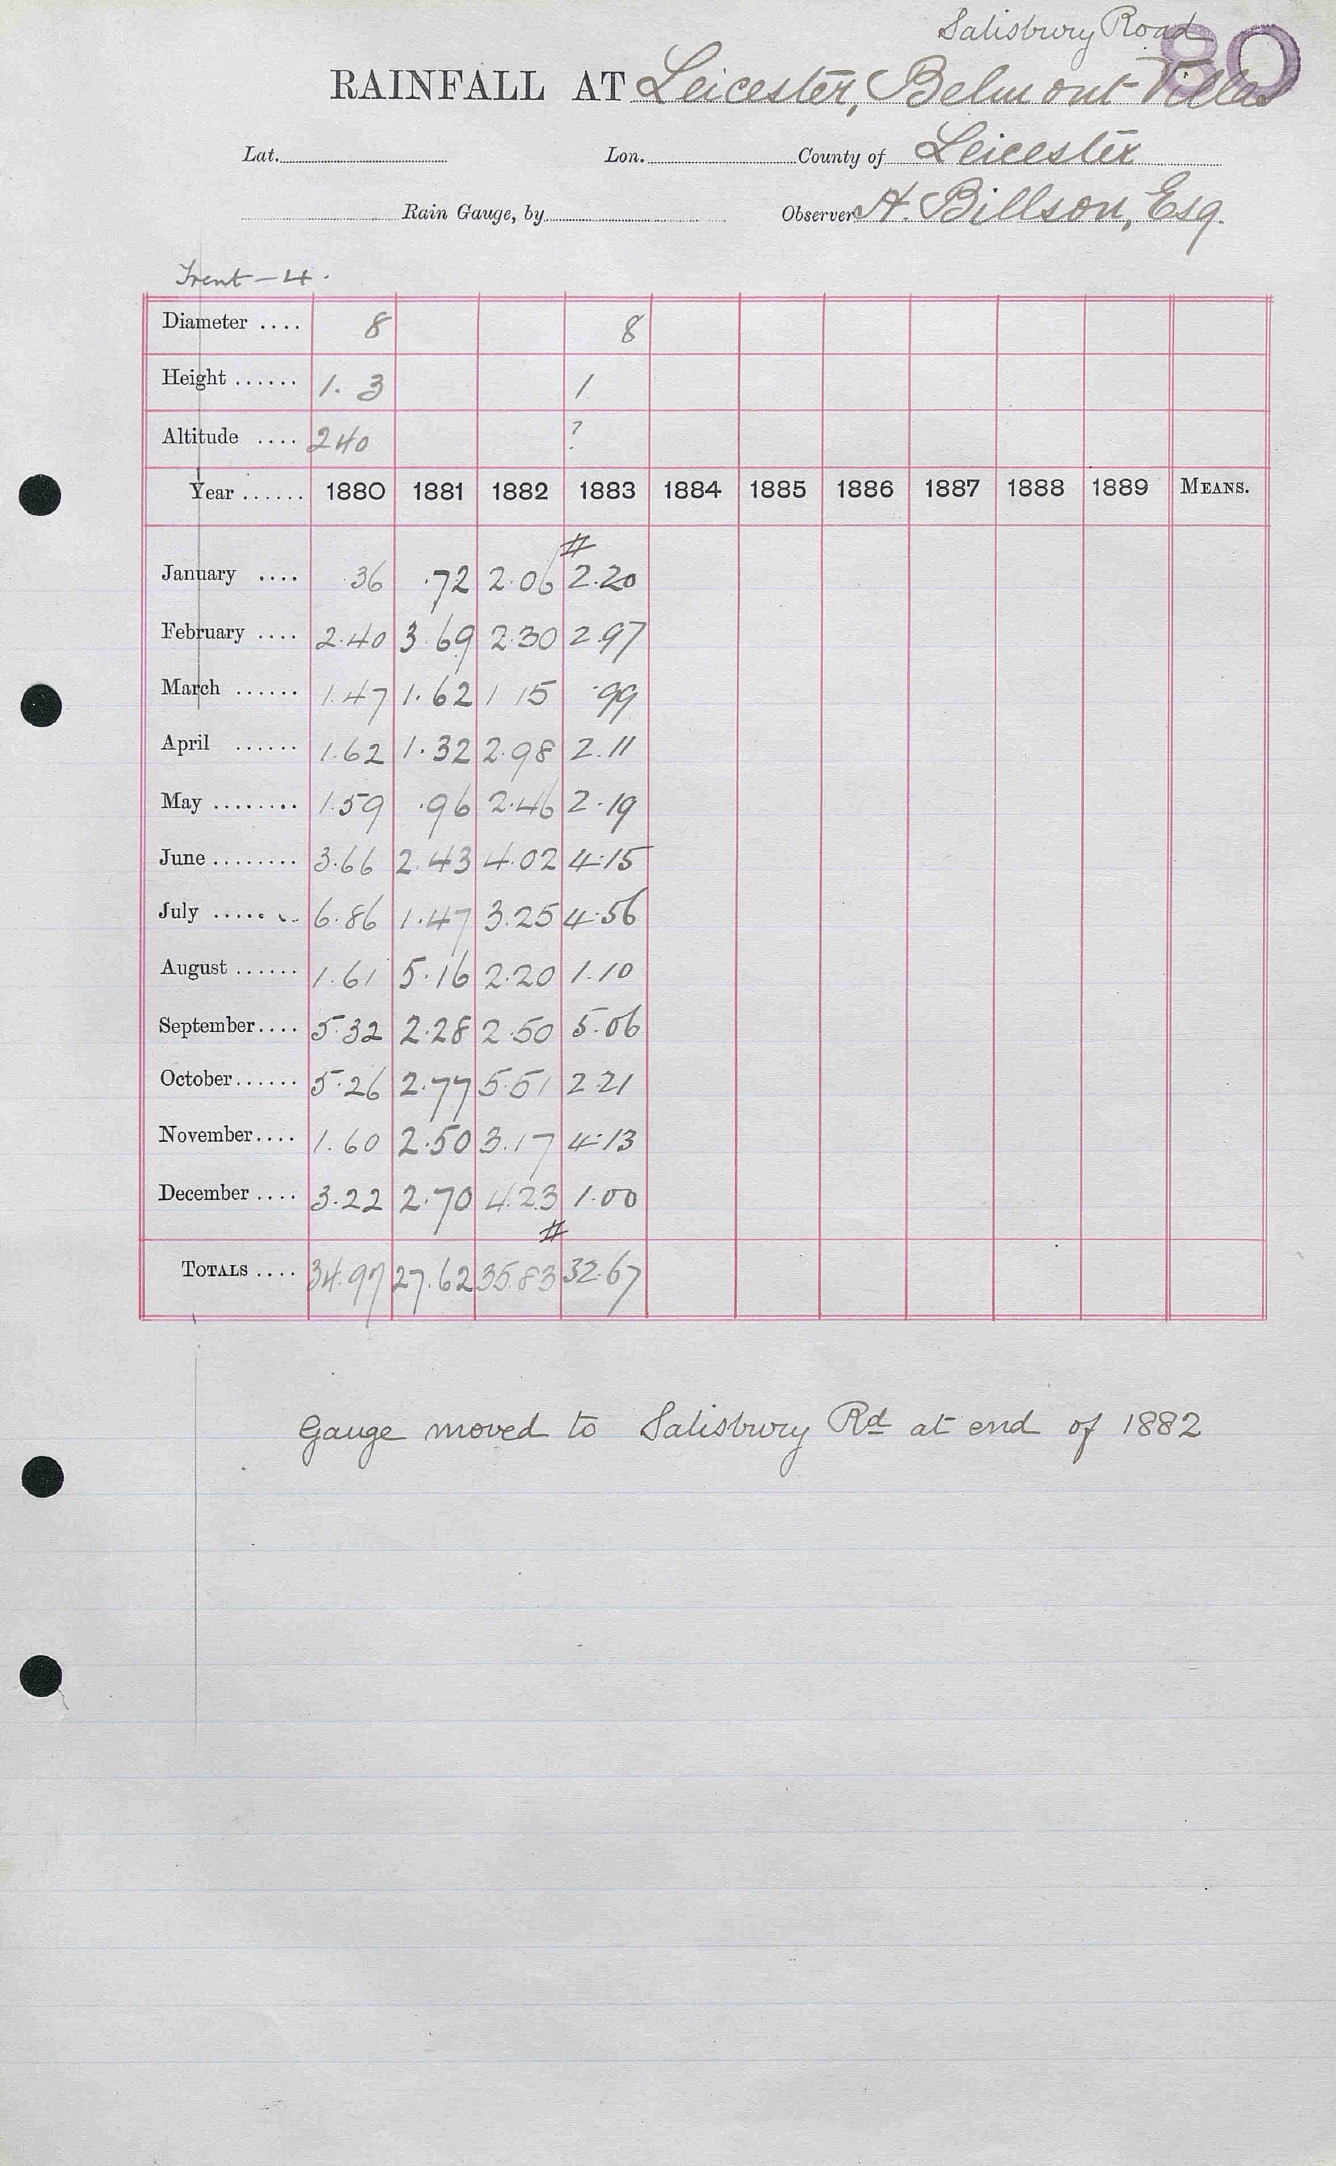 Salisbury Road
80
RAINFALL AT Leicester, Belmont Villas
Lat. Lon. County of Leicester
Rain Gauge, by Observer A. Billson, Esq.
Trent - 4.
Diameter .... 8 8
Height ...... 1. 3 1
Altitude .... 240 ?
Year ...... 1880 1881 1882 1883 1884 1885 1886 1887 1888 1889 MEANS.
#
January .... .36 .72 2.06 2.20
February .... 2.40 3.69 2.30 2.97
March ...... 1.47 1.62 1 15 .99
April ...... 1.62 1.32 2.98 2.11
May ........ 1.59 .96 2.46 2.19
June ........ 3.66 2.43 4.02 4.15
July ...... 6.86 1.47 3.25 4.56
August ...... 1.61 5.16 2.20 1.10
September .... 5.32 2.28 2.50 5.06
October ...... 5.26 2.77 5.51 2.21
November .... 1.60 2.50 3.17 4.13
December .... 3.22 2.70 4.23 1.00
#
TOTALS .... 34.97 27.62 35.83 32.67
Gauge moved to Salisbury Rd at end of 1882